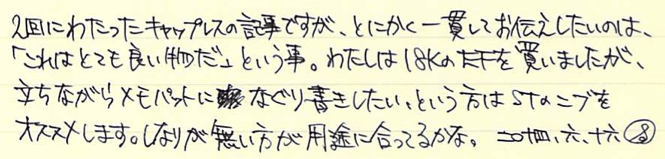 2回にわたったキャップレスの記事ですが、とにかく一貫してお伝えしたいのは、
「これはとても良い物だ」という事。わたしは18KのFを買いましたが、
立ちながらメモパットになぐり書きしたい、という方はSTのニブを
オススメします。しなりが無い方が用途に合ってるかな。 二〇十四、六、十六